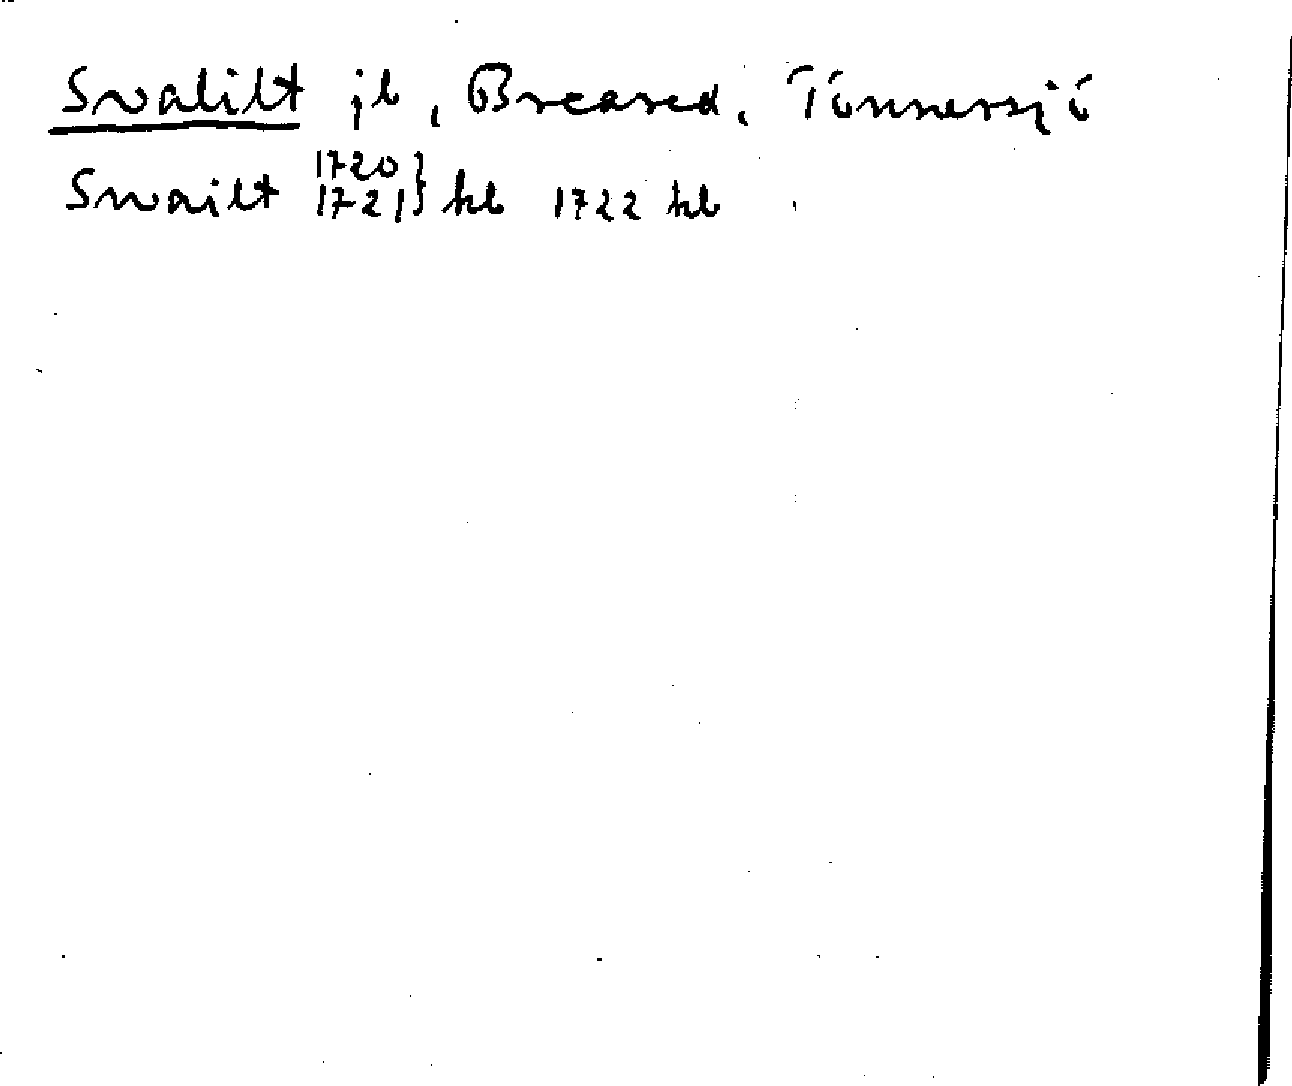 Svalilt jb, Breared, Tönnersjö
Swailt 1720 1721} kb 1722 kb